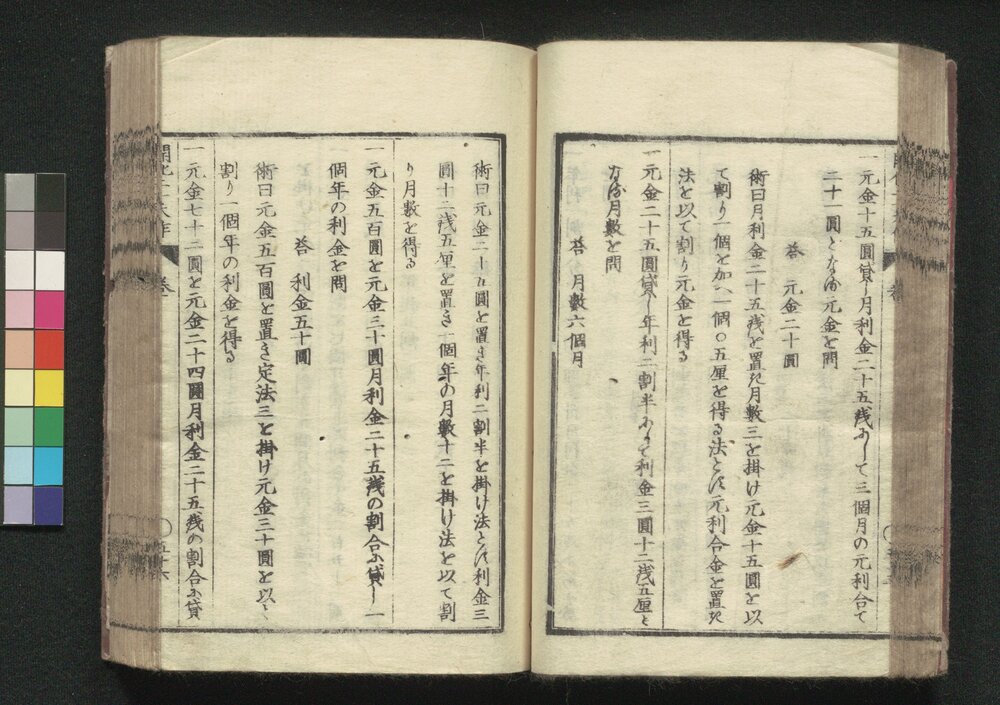 一元金十五圓貸し月利金二十五戔ありて三個月の元利合て
二十一圓となる元金を問
答　元金二十圓
術曰月利金二十五戔を置き月數三を掛け元金十五圓を以
て割り一個を加へ一個〇五厘を得る法とす元利合金を置き
法を以て割り元金を得る
一元金二十五圓貸し年利二割半にて利金三圓十二戔五厘と
なる月數を問
答　月數六個月
術曰元金二十五圓を置き年利二割半を掛け法とす利金三
圓十二戔五厘を置き一個年の月數十二を掛け法を以て割
り月數を得る
一元金五百圓を元金三十圓月利金二十五戔の割合に貸し一
個年の利金を問
答　利金五十圓
術曰元金五百圓を置き定法三を掛け元金三十圓を以て
割り一個年の利金を得る
一元金七十二圓を元金二十四圓月利金二十五戔の割合に貸
卷二
五十六